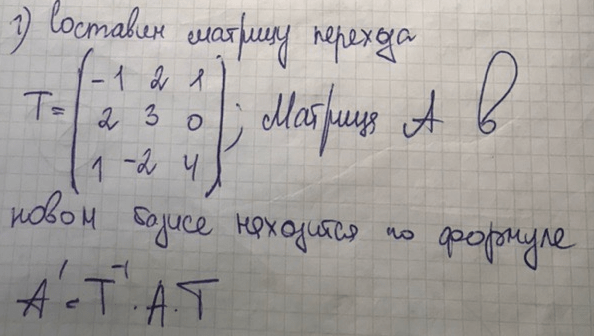 1) Составим матрицу перехода
T = (-1 2 1
2 3 0
1 -2 4); Матрица A в
новом базисе находится по формуле
A' = T⁻¹ · A · T